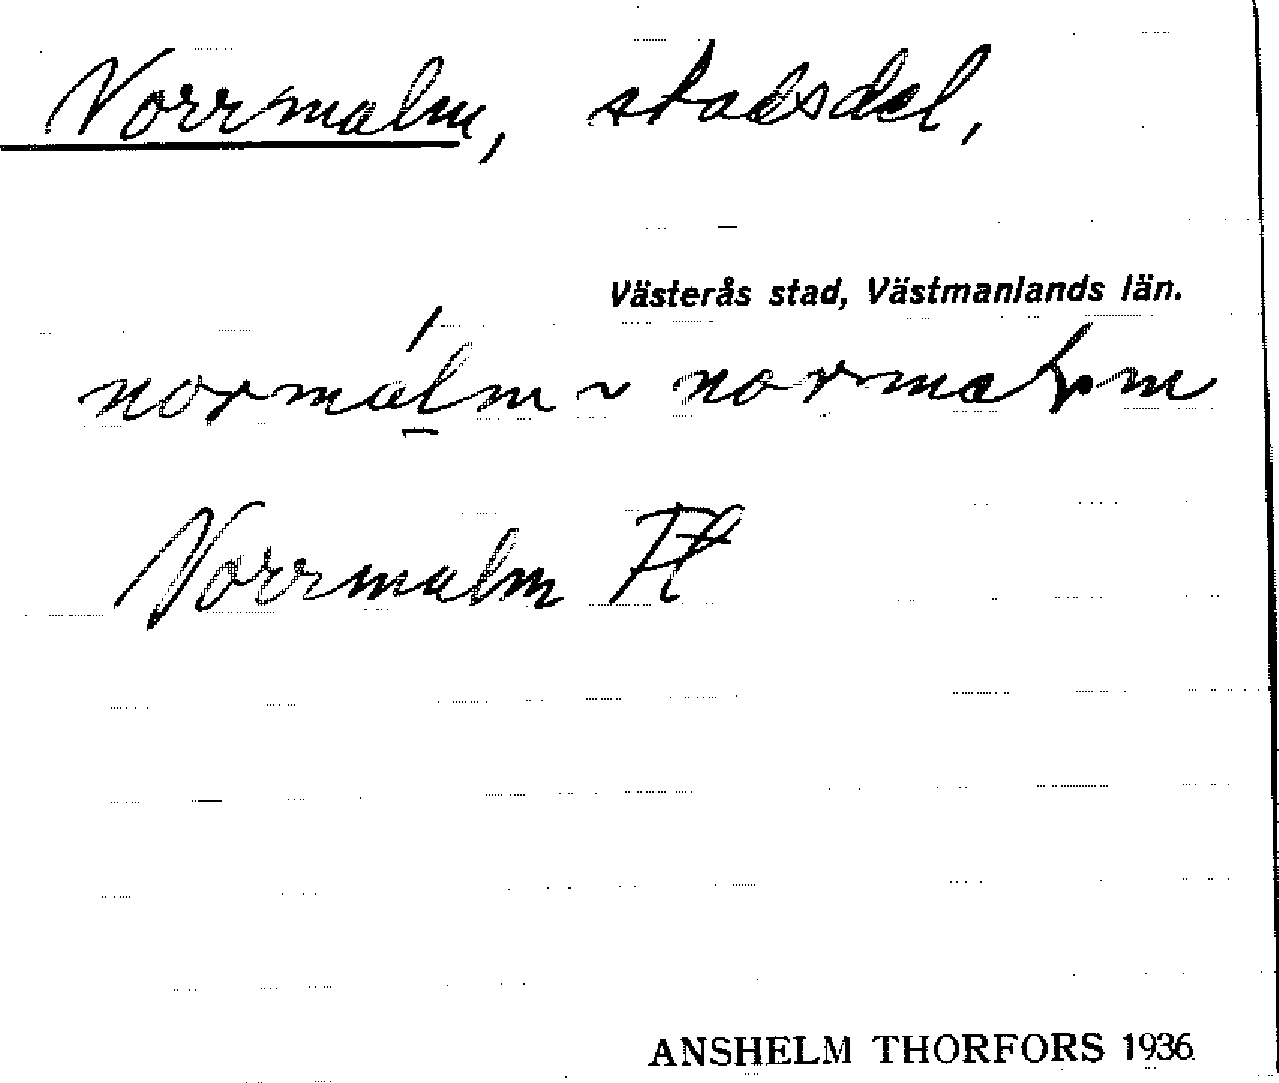 Norrmalm, stadsdel,
Västerås stad, Västmanlands län.
normálm ~ normalm
Norrmalm
ANSHELM THORFORS 1936